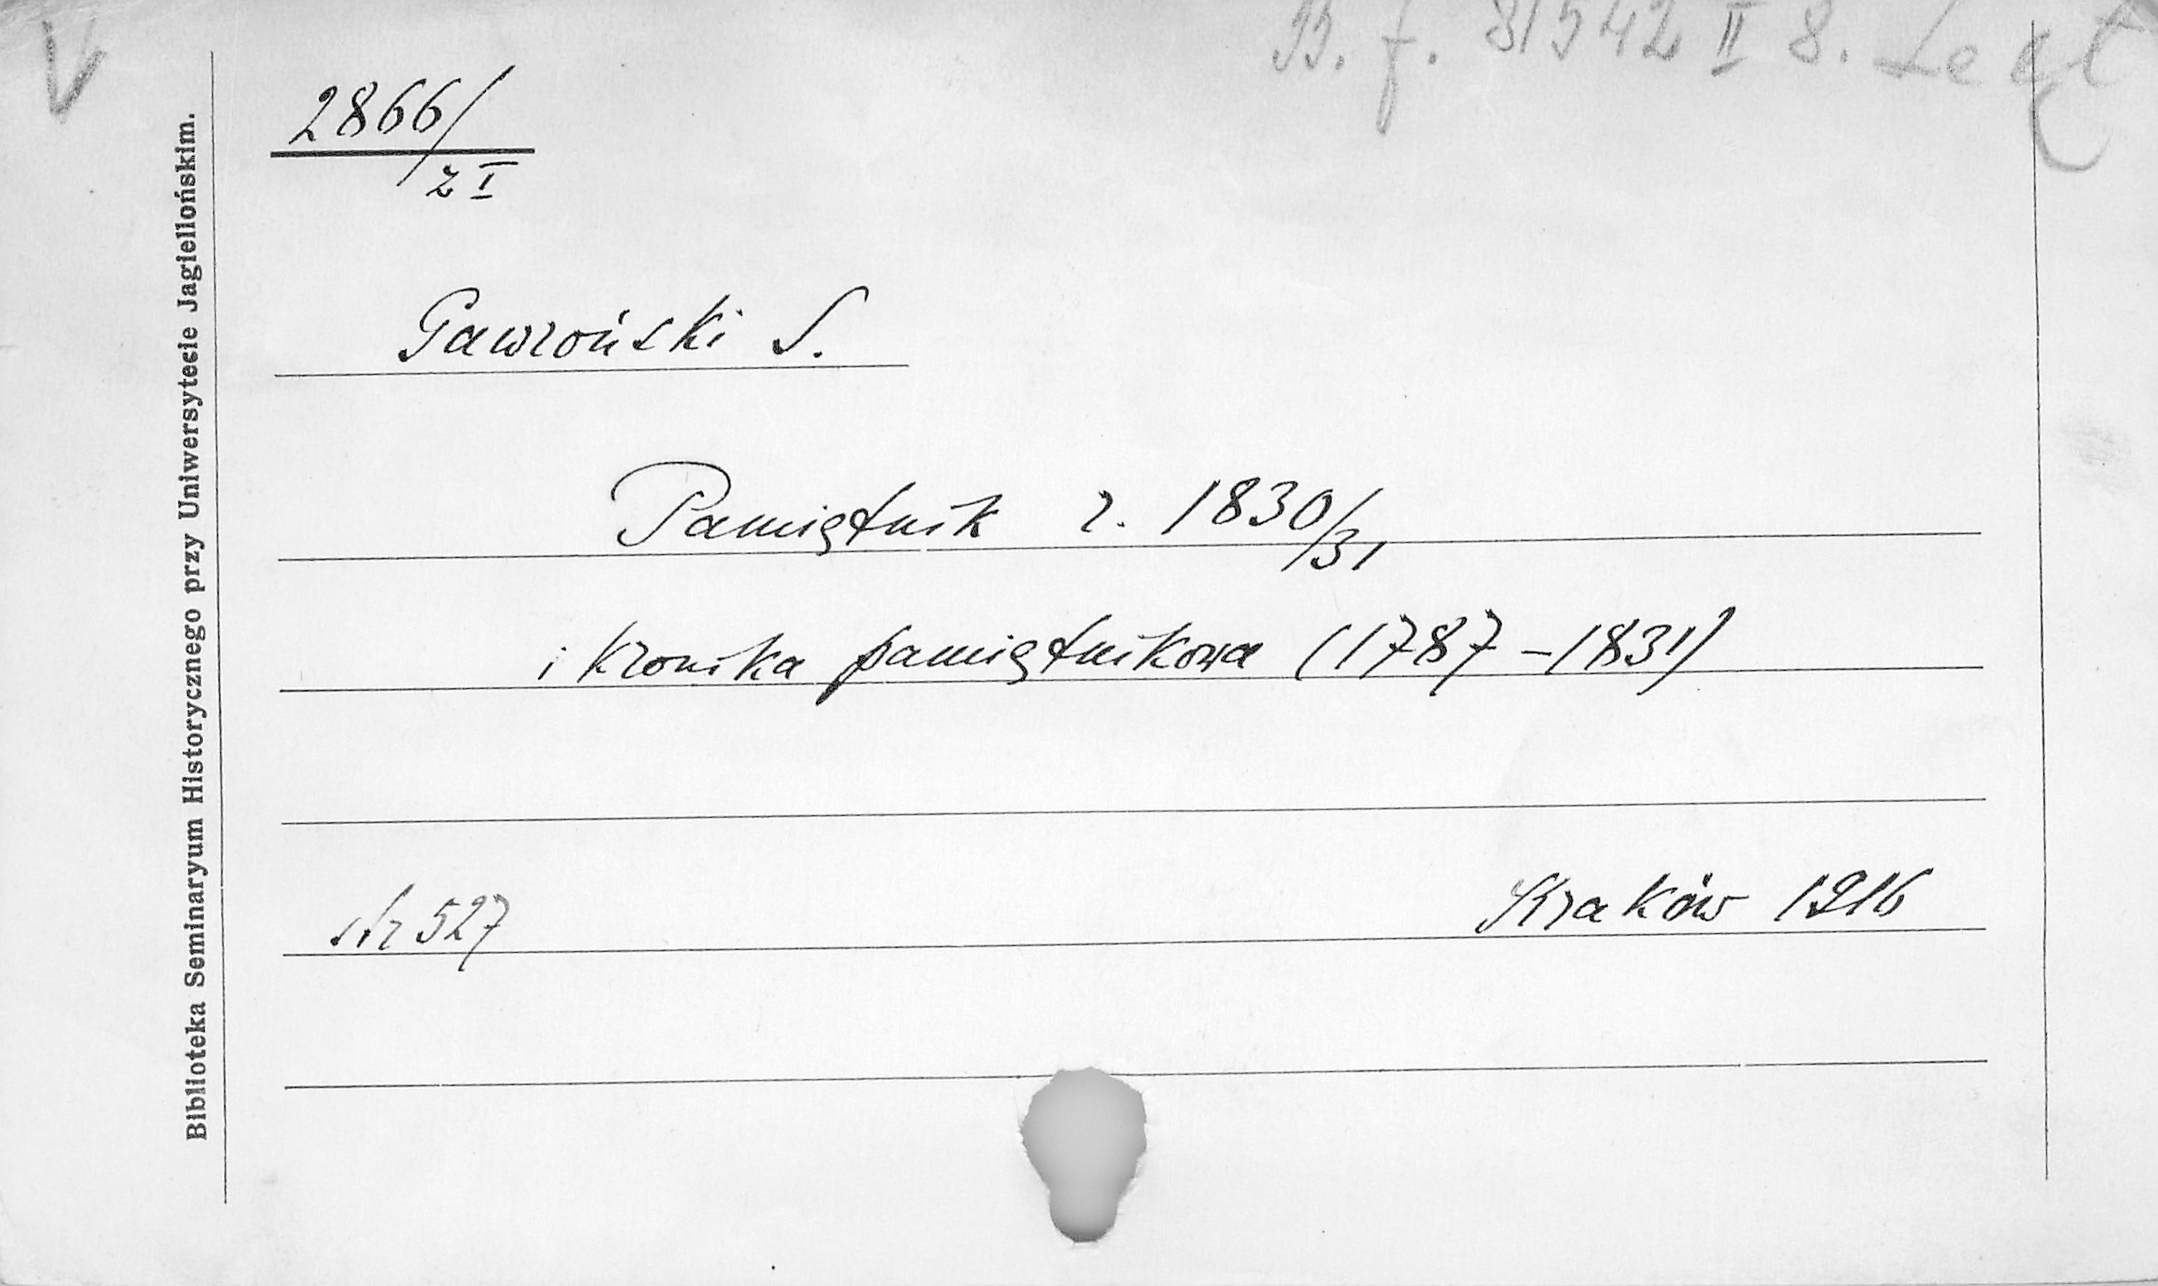 B. f. 81542 II 8. Leg
2866/z I
Gawroński S.
Pamiętnik r. 1830/31
i kronika pamiętnikowa (1787-1831)
str 527
Kraków 1916
Biblioteka Seminaryum Historycznego przy Uniwersytecie Jagiellońskim.